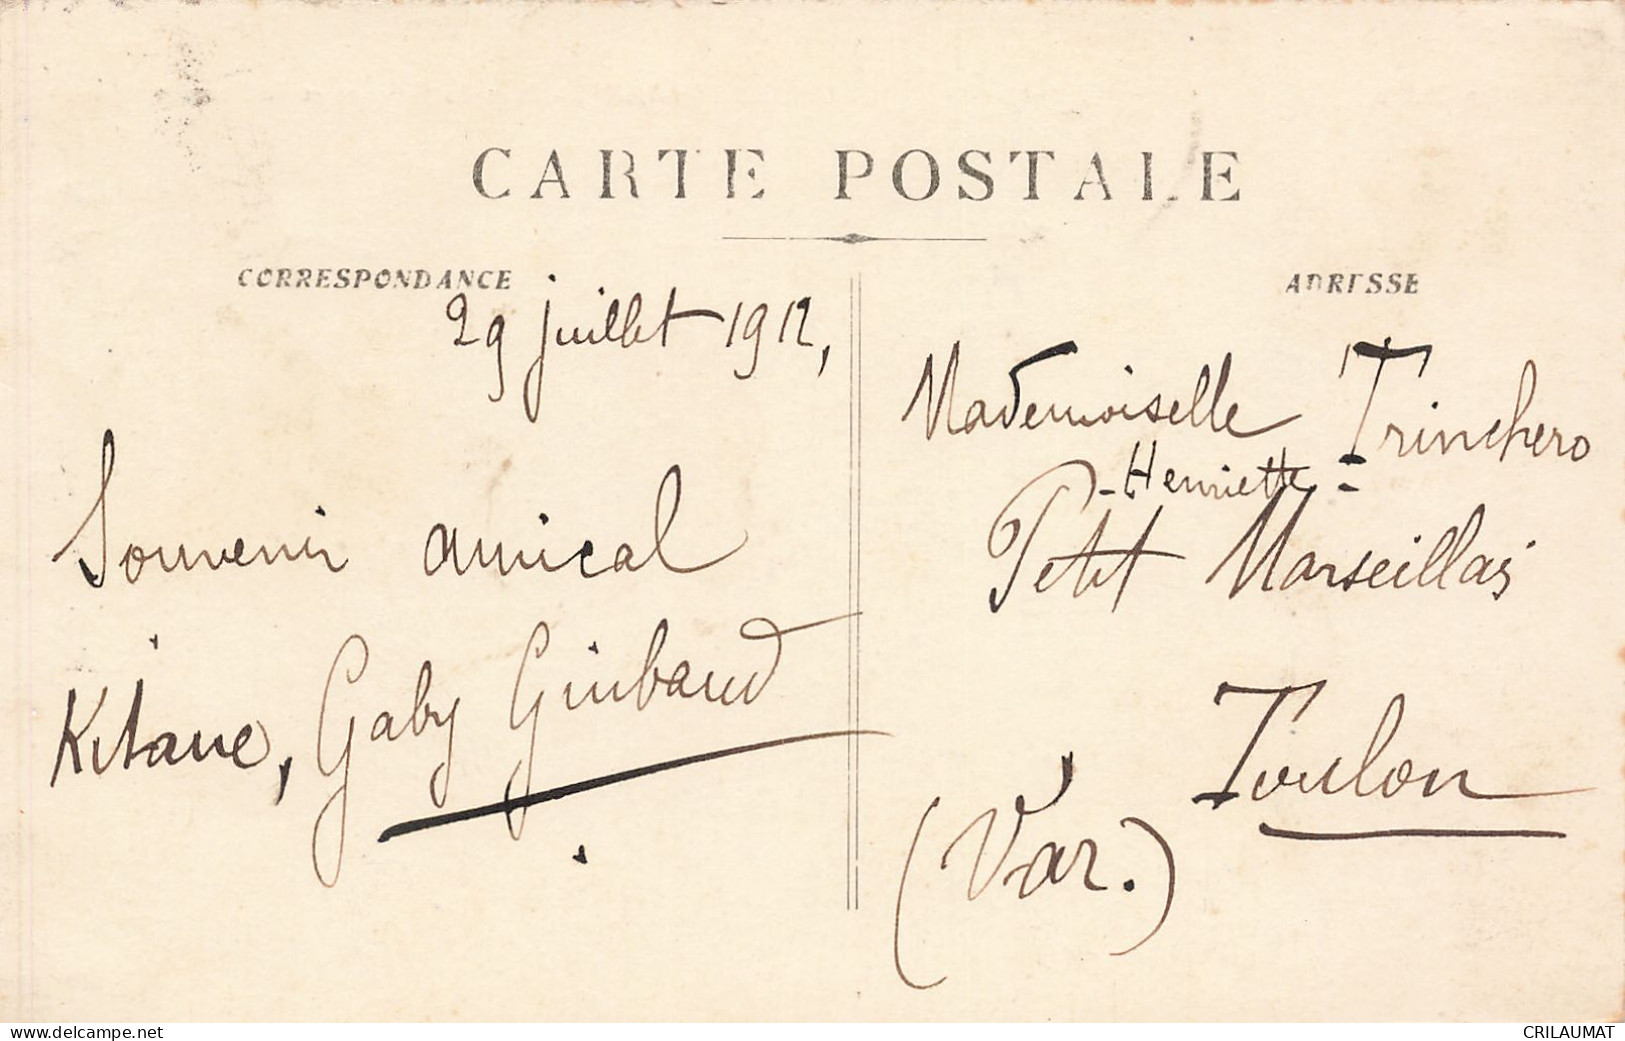 CARTE POSTALE
CORRESPONDANCE
29 juillet 1912,
Souvenir amical
Kitane, Gaby Guibaud
ADRESSE
Mademoiselle Trinchero
- Henriette =
Petit Marseillais
Toulon
(Var.)
www.delcampe.net
CRILAUMAT